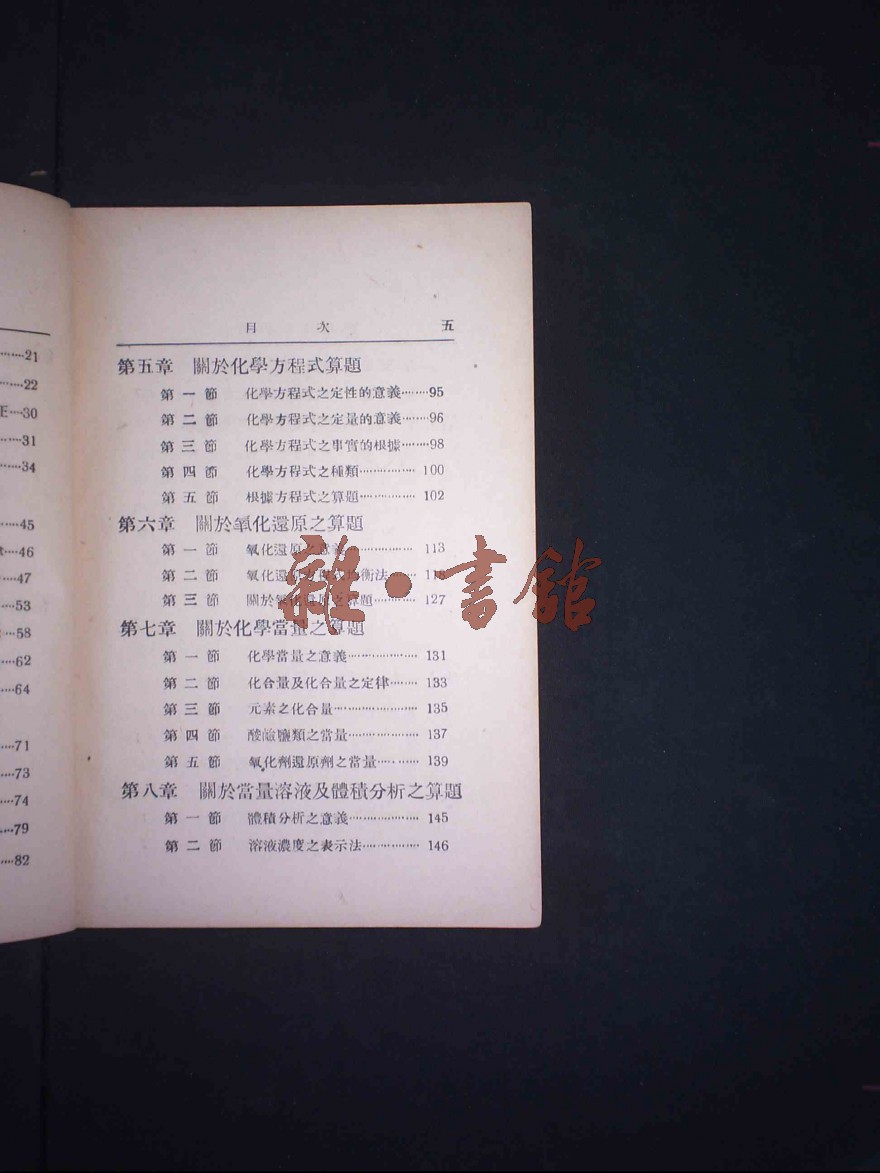 ……21
……22
正…30
……31
……34
……45
…46
……47
……53
…58
……62
……64
……71
……73
……74
……79
……82
目 次 五
第五章 關於化學方程式算題
第一節 化學方程式之定性的意義……95
第二節 化學方程式之定量的意義……96
第三節 化學方程式之事實的根據……98
第四節 化學方程式之種類……100
第五節 根據方程式之算題……102
第六章 關於氧化還原之算題
第一節 氧化還原之意義……113
第二節 氧化還原方程式均衡法……118
第三節 關於氧化還原之算題……127
第七章 關於化學當量之算題
第一節 化學當量之意義……131
第二節 化合量及化合量之定律……133
第三節 元素之化合量……135
第四節 酸鹼鹽類之當量……137
第五節 氧化劑還原劑之當量……139
第八章 關於當量溶液及體積分析之算題
第一節 體積分析之意義……145
第二節 溶液濃度之表示法……146
雜·書館